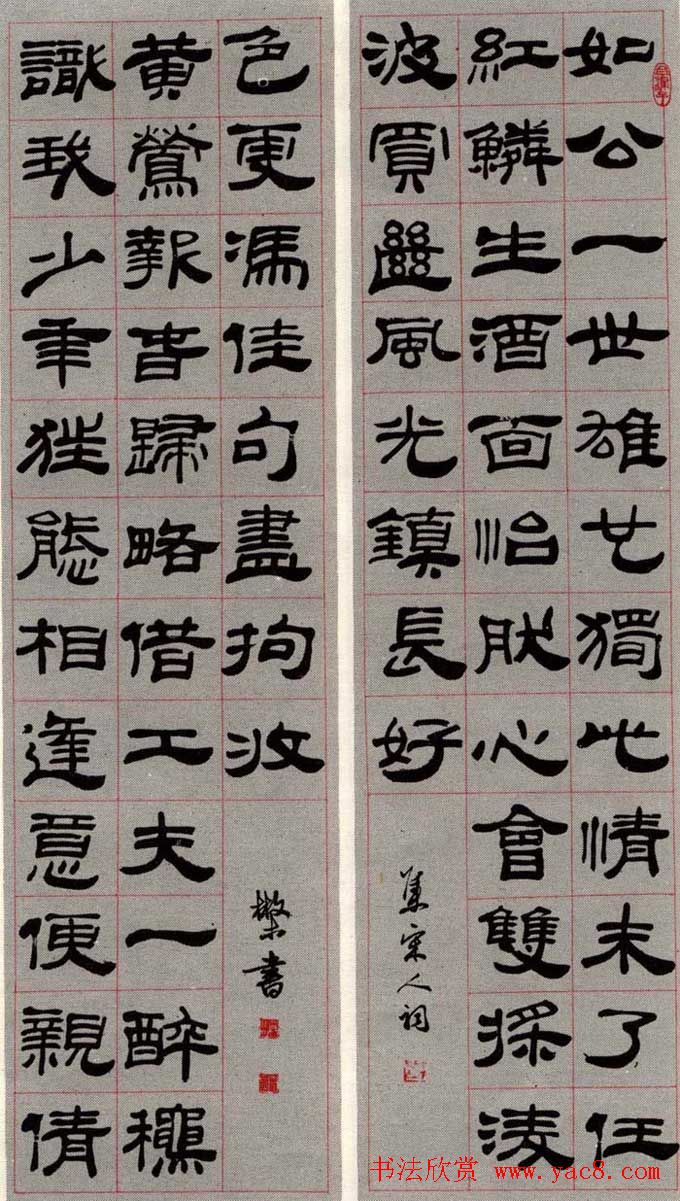 如公一世雄也獨此情未了任
紅鱗生酒面怡然心會雙採淩
波買斷風光鎮長好
集宋人詞
識我少年狂態相逢意便親倩
黃鶯報春歸略借工夫一醉穠
色更馮佳句盡拘收
散木書
书法欣赏 www.yac8.com